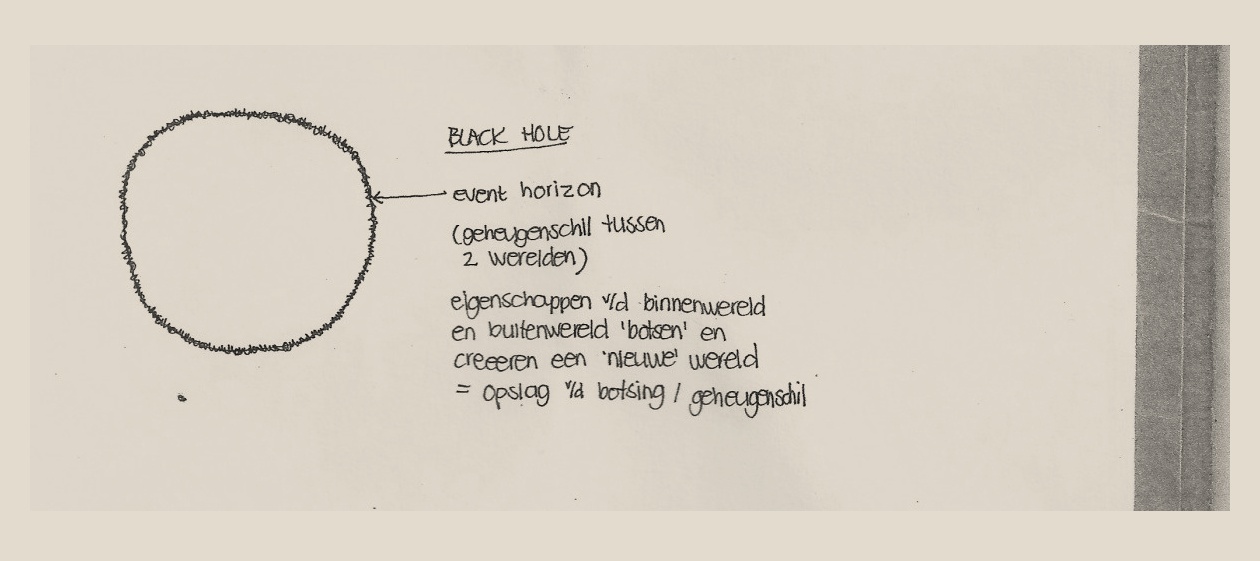 BLACK HOLE
event horizon
(geheugenschil tussen
2 werelden)
eigenschappen v/d binnenwereld
en buitenwereld 'botsen' en
creeeren een 'nieuwe' wereld
= opslag v/d botsing / geheugenschil